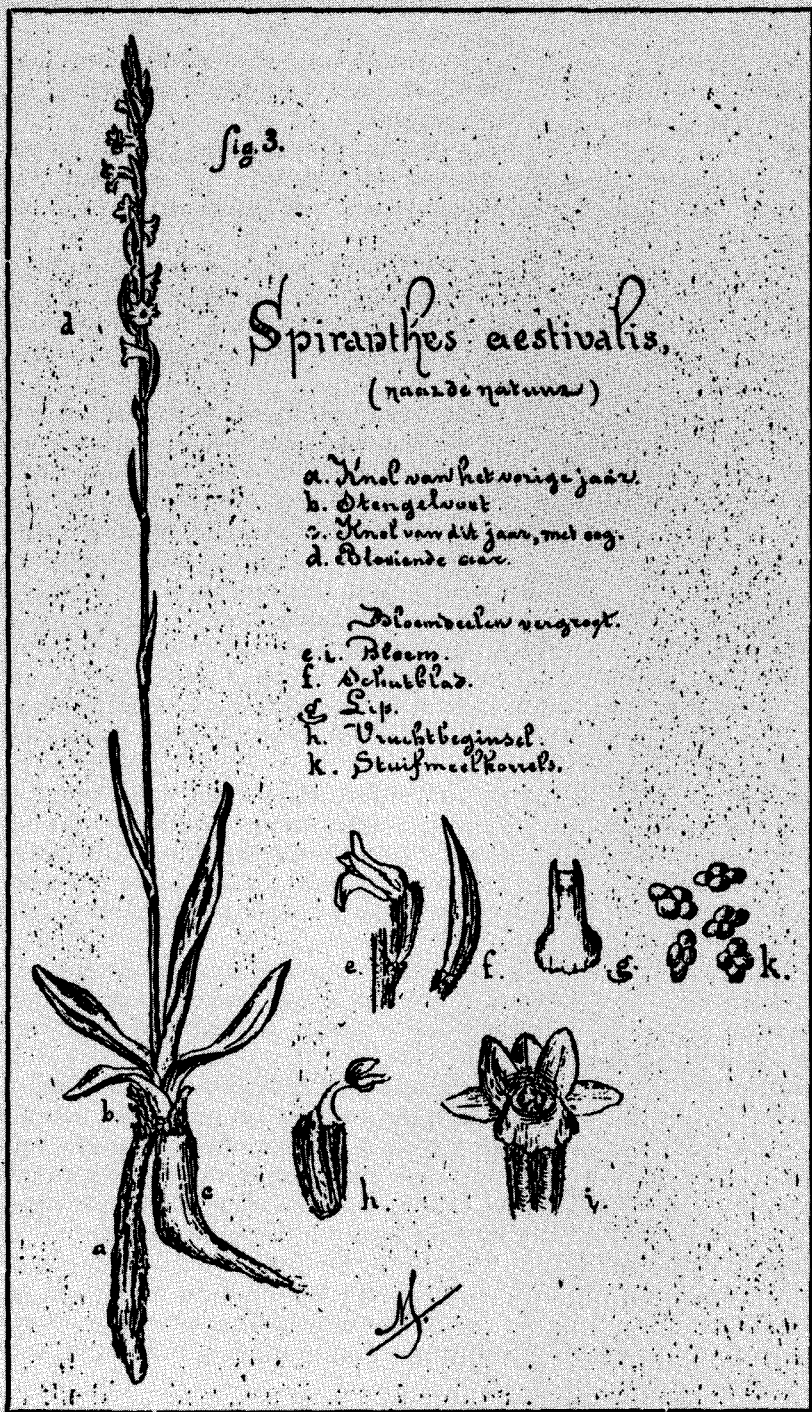 fig. 3.
Spiranthes aestivalis,
(naar de natuur)
a. Knol van het vorige jaar.
b. Stengelvoet
c. Knol van dit jaar, met oog.
d. Bloeiende aar.
Bloemdeelen vergroot.
e.i. Bloem.
f. Schutblad.
g Lip.
h. Vruchtbeginsel.
k. Stuifmeelkorrels.
d
e.
f.
g.
k.
b
c
a
h.
i.